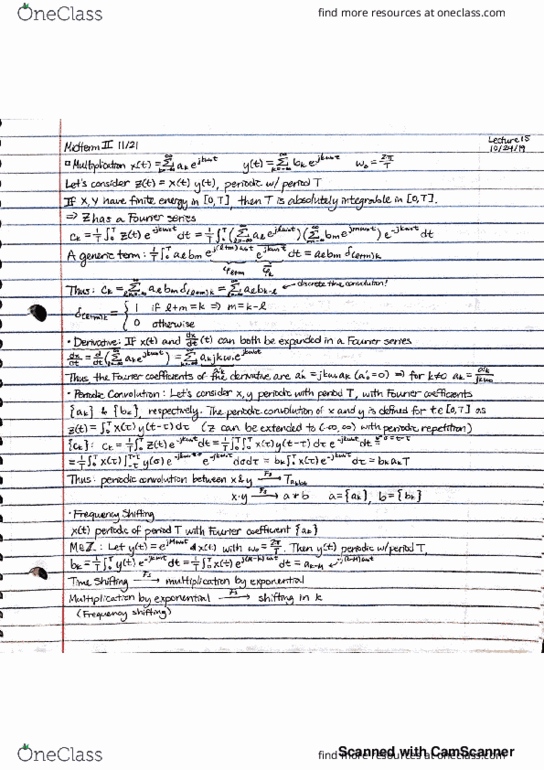 OneClass
find more resources at oneclass.com
Midterm II 11/21
Lecture 15
10/24/19
Multiplication x(t) = Σ aₖ e^{jkω₀t} y(t) = Σ bₖ e^{jkω₀t} ω₀ = 2π/T
Let's consider z(t) = x(t) y(t), periodic w/ period T
If x, y have finite energy in [0,T], then T is absolutely integrable in [0,T].
⇒ z has a Fourier series
cₖ = 1/T ∫₀ᵀ z(t) e^{-jkω₀t} dt = 1/T ∫₀ᵀ (Σ aₗ e^{jlω₀t})(Σ bₘ e^{jmω₀t}) e^{-jkω₀t} dt
A generic term: 1/T ∫₀ᵀ aₗ bₘ e^{j(l+m)ω₀t} e^{-jkω₀t} dt = aₗ bₘ δ₍ₗ₊ₘ₎ₖ
Thus: cₖ = Σ aₗ bₘ δ₍ₗ₊ₘ₎ₖ = Σ aₗ bₖ₋ₗ ← discrete time convolution!
δ₍ₗ₊ₘ₎ₖ = { 1 if l+m=k ⇒ m=k-l
0 otherwise
• Derivative: If x(t) and dx/dt (t) can both be expanded in a Fourier series
dx/dt = d/dt (Σ aₖ e^{jkω₀t}) = Σ aₖ jkω₀ e^{jkω₀t}
Thus the Fourier coefficients of the derivative are a'ₖ = jkω₀aₖ (a'₀=0) ⇒ for k≠0 aₖ = a'ₖ/jkω₀
• Periodic Convolution: Let's consider x,y periodic with period T, with Fourier coefficients
{aₖ} & {bₖ}, respectively. The periodic convolution of x and y is defined for t∈[0,T] as
z(t) = ∫₀ᵀ x(τ) y(t-τ) dτ (z can be extended to (-∞,∞) with periodic repetition)
{cₖ}: cₖ = 1/T ∫₀ᵀ z(t) e^{-jkω₀t} dt = 1/T ∫₀ᵀ ∫₀ᵀ x(τ) y(t-τ) dτ e^{-jkω₀t} dt σ=t-τ
= 1/T ∫₀ᵀ x(τ) ∫ y(σ) e^{-jkω₀σ} e^{-jkω₀τ} dσdτ = bₖ ∫₀ᵀ x(τ) e^{-jkω₀τ} dτ = bₖ aₖ T
Thus: periodic convolution between x & y —FS→ T aₖbₖ
x·y —FS→ a*b a={aₖ}, b={bₖ}
• Frequency Shifting
x(t) periodic of period T with Fourier coefficient {aₖ}
M∈Z: Let y(t) = e^{jMω₀t} x(t) with ω₀ = 2π/T. Then y(t) periodic w/ period T,
bₖ = 1/T ∫₀ᵀ y(t) e^{-jkω₀t} dt = 1/T ∫₀ᵀ x(t) e^{-j(k-M)ω₀t} dt = aₖ₋ₘ
Time Shifting —FS→ multiplication by exponential
Multiplication by exponential —FS→ shifting in k
(Frequency shifting)
Scanned with CamScanner
OneClass
find more resources at oneclass.com